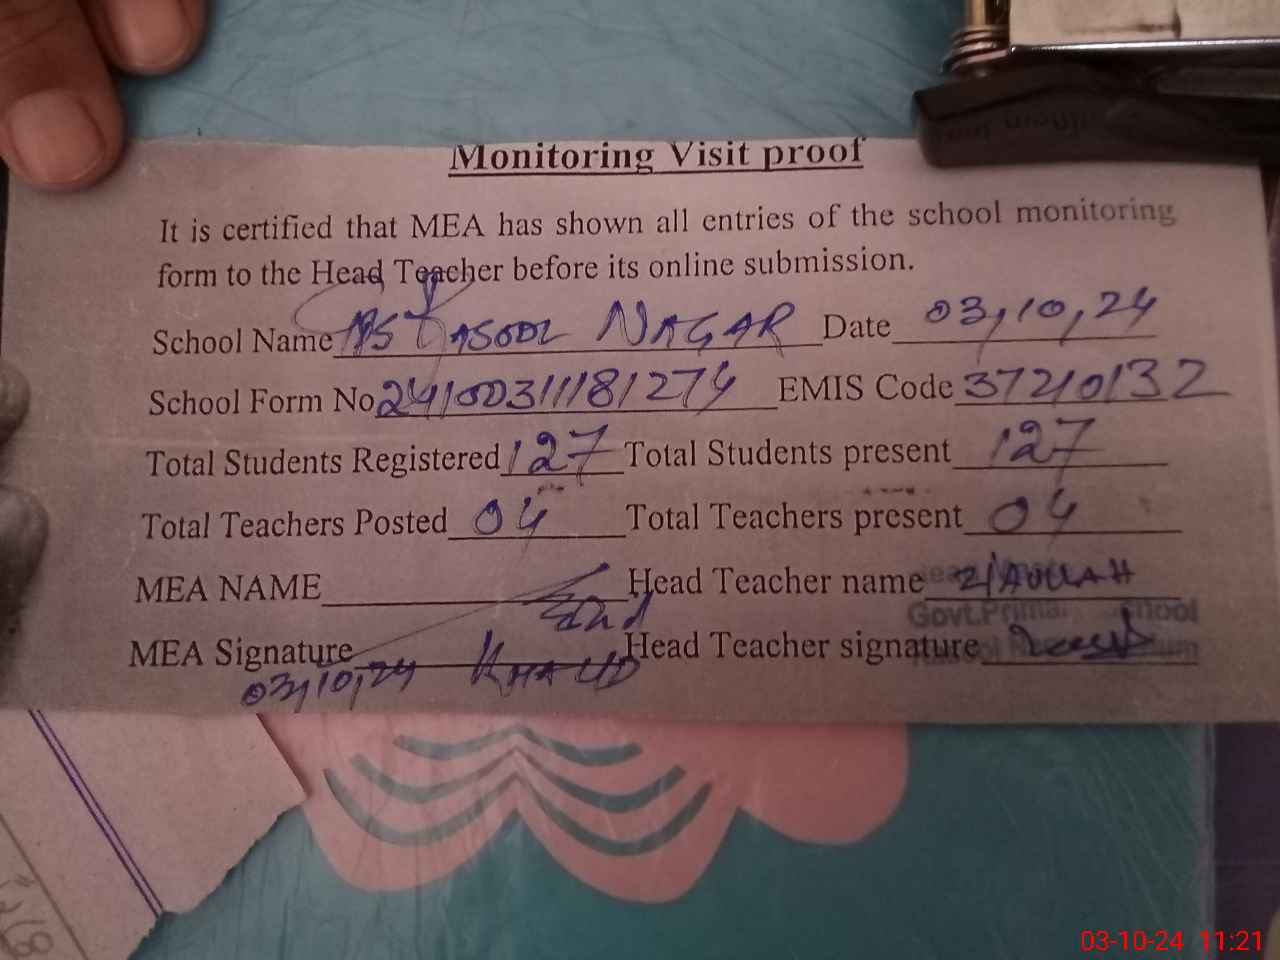 Monitoring Visit proof
It is certified that MEA has shown all entries of the school monitoring
form to the Head Teacher before its online submission.
School Name PS RASOOL NAGAR Date 03,10,24
School Form No 24100311181274 EMIS Code 37210132
Total Students Registered 127 Total Students present 127
Total Teachers Posted 04 Total Teachers present 04
MEA NAME Head Teacher name ZIAULLAH
Govt.Primary School
MEA Signature KHALID Head Teacher signature
03,10,24
03-10-24 11:21